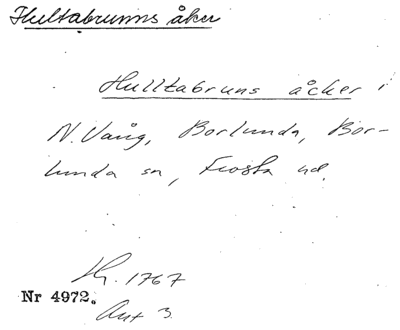 Hultabrunns åker
Hulltabruns åcker i
N. Vång, Borlunda, Bor-
lunda sn, Frosta hd.
Lh. 1767
Nr 4972.
Akt 3.